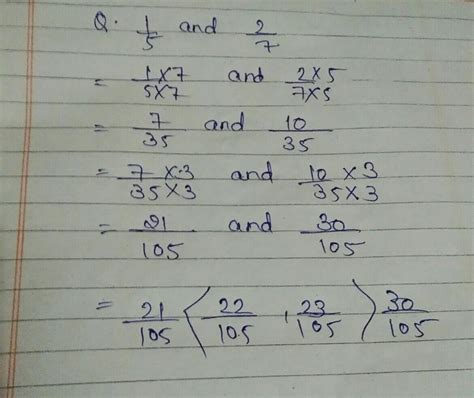 Q. 1/5 and 2/7
= 1×7/5×7 and 2×5/7×5
= 7/35 and 10/35
= 7×3/35×3 and 10×3/35×3
= 21/105 and 30/105
= 21/105 ⟨ 22/105 , 23/105 ⟩ 30/105